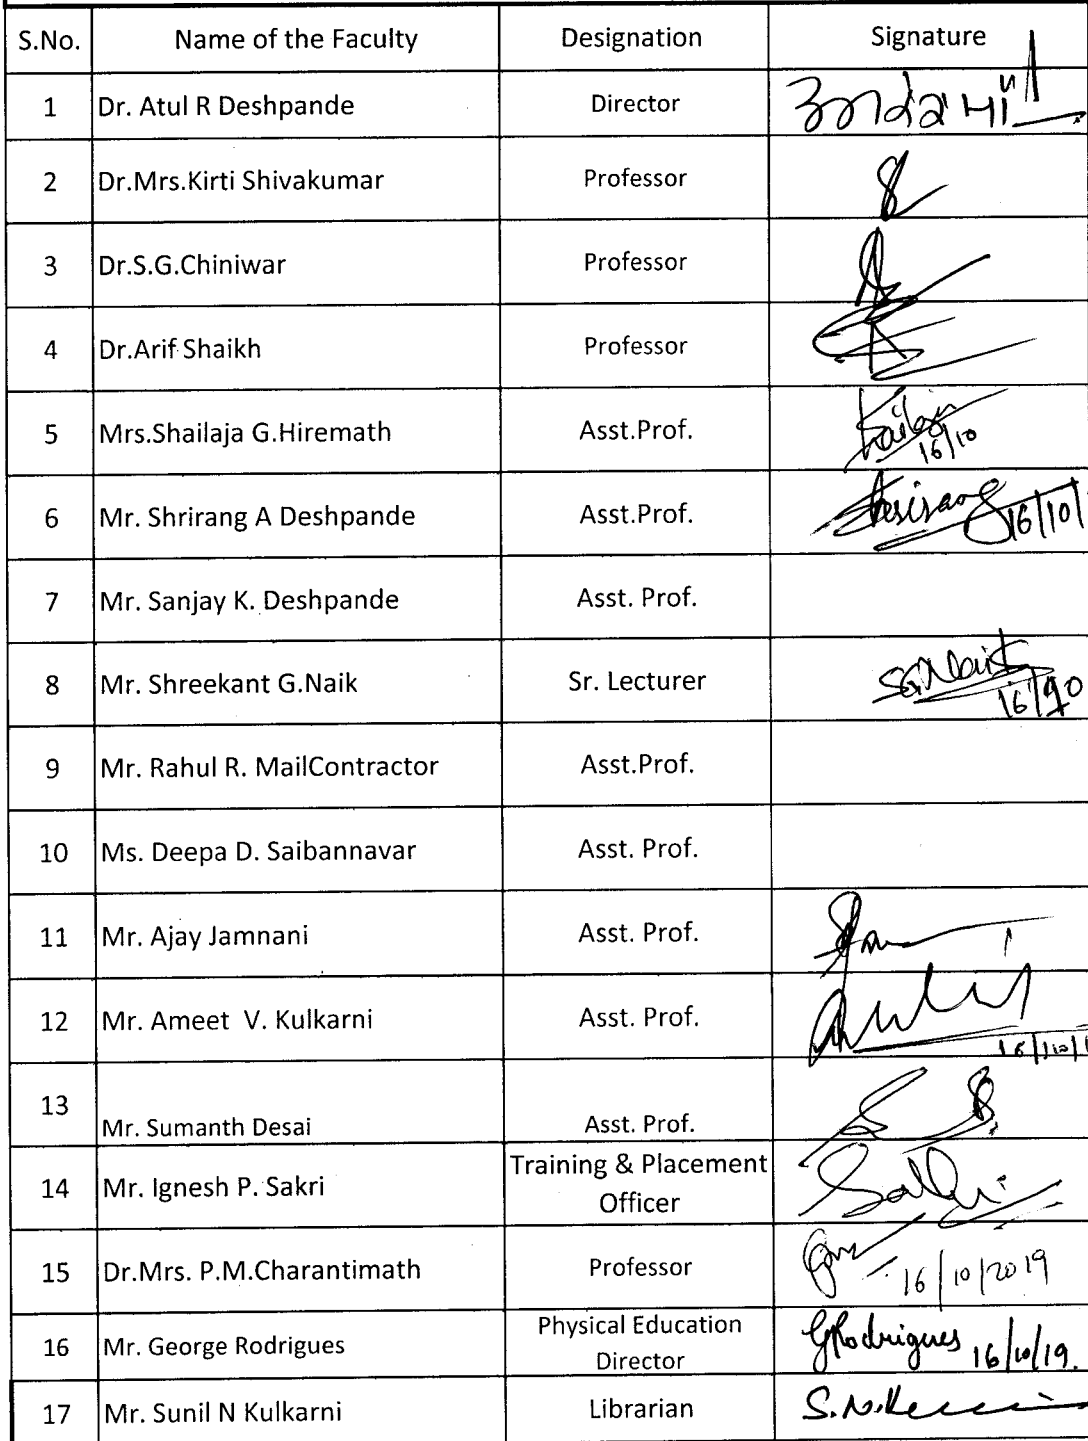 S.No. Name of the Faculty Designation Signature
1 Dr. Atul R Deshpande Director
2 Dr.Mrs.Kirti Shivakumar Professor
3 Dr.S.G.Chiniwar Professor
4 Dr.Arif Shaikh Professor
5 Mrs.Shailaja G.Hiremath Asst.Prof.
16/10
6 Mr. Shrirang A Deshpande Asst.Prof. 16/10/
7 Mr. Sanjay K. Deshpande Asst. Prof.
8 Mr. Shreekant G.Naik Sr. Lecturer SGNaik
16/10
9 Mr. Rahul R. MailContractor Asst.Prof.
10 Ms. Deepa D. Saibannavar Asst. Prof.
11 Mr. Ajay Jamnani Asst. Prof.
12 Mr. Ameet V. Kulkarni Asst. Prof.
16/10/1
13
Mr. Sumanth Desai Asst. Prof.
14 Mr. Ignesh P. Sakri Training & Placement
Officer
15 Dr.Mrs. P.M.Charantimath Professor 16/10/2019
16 Mr. George Rodrigues Physical Education
Director GRodrigues 16/10/19.
17 Mr. Sunil N Kulkarni Librarian